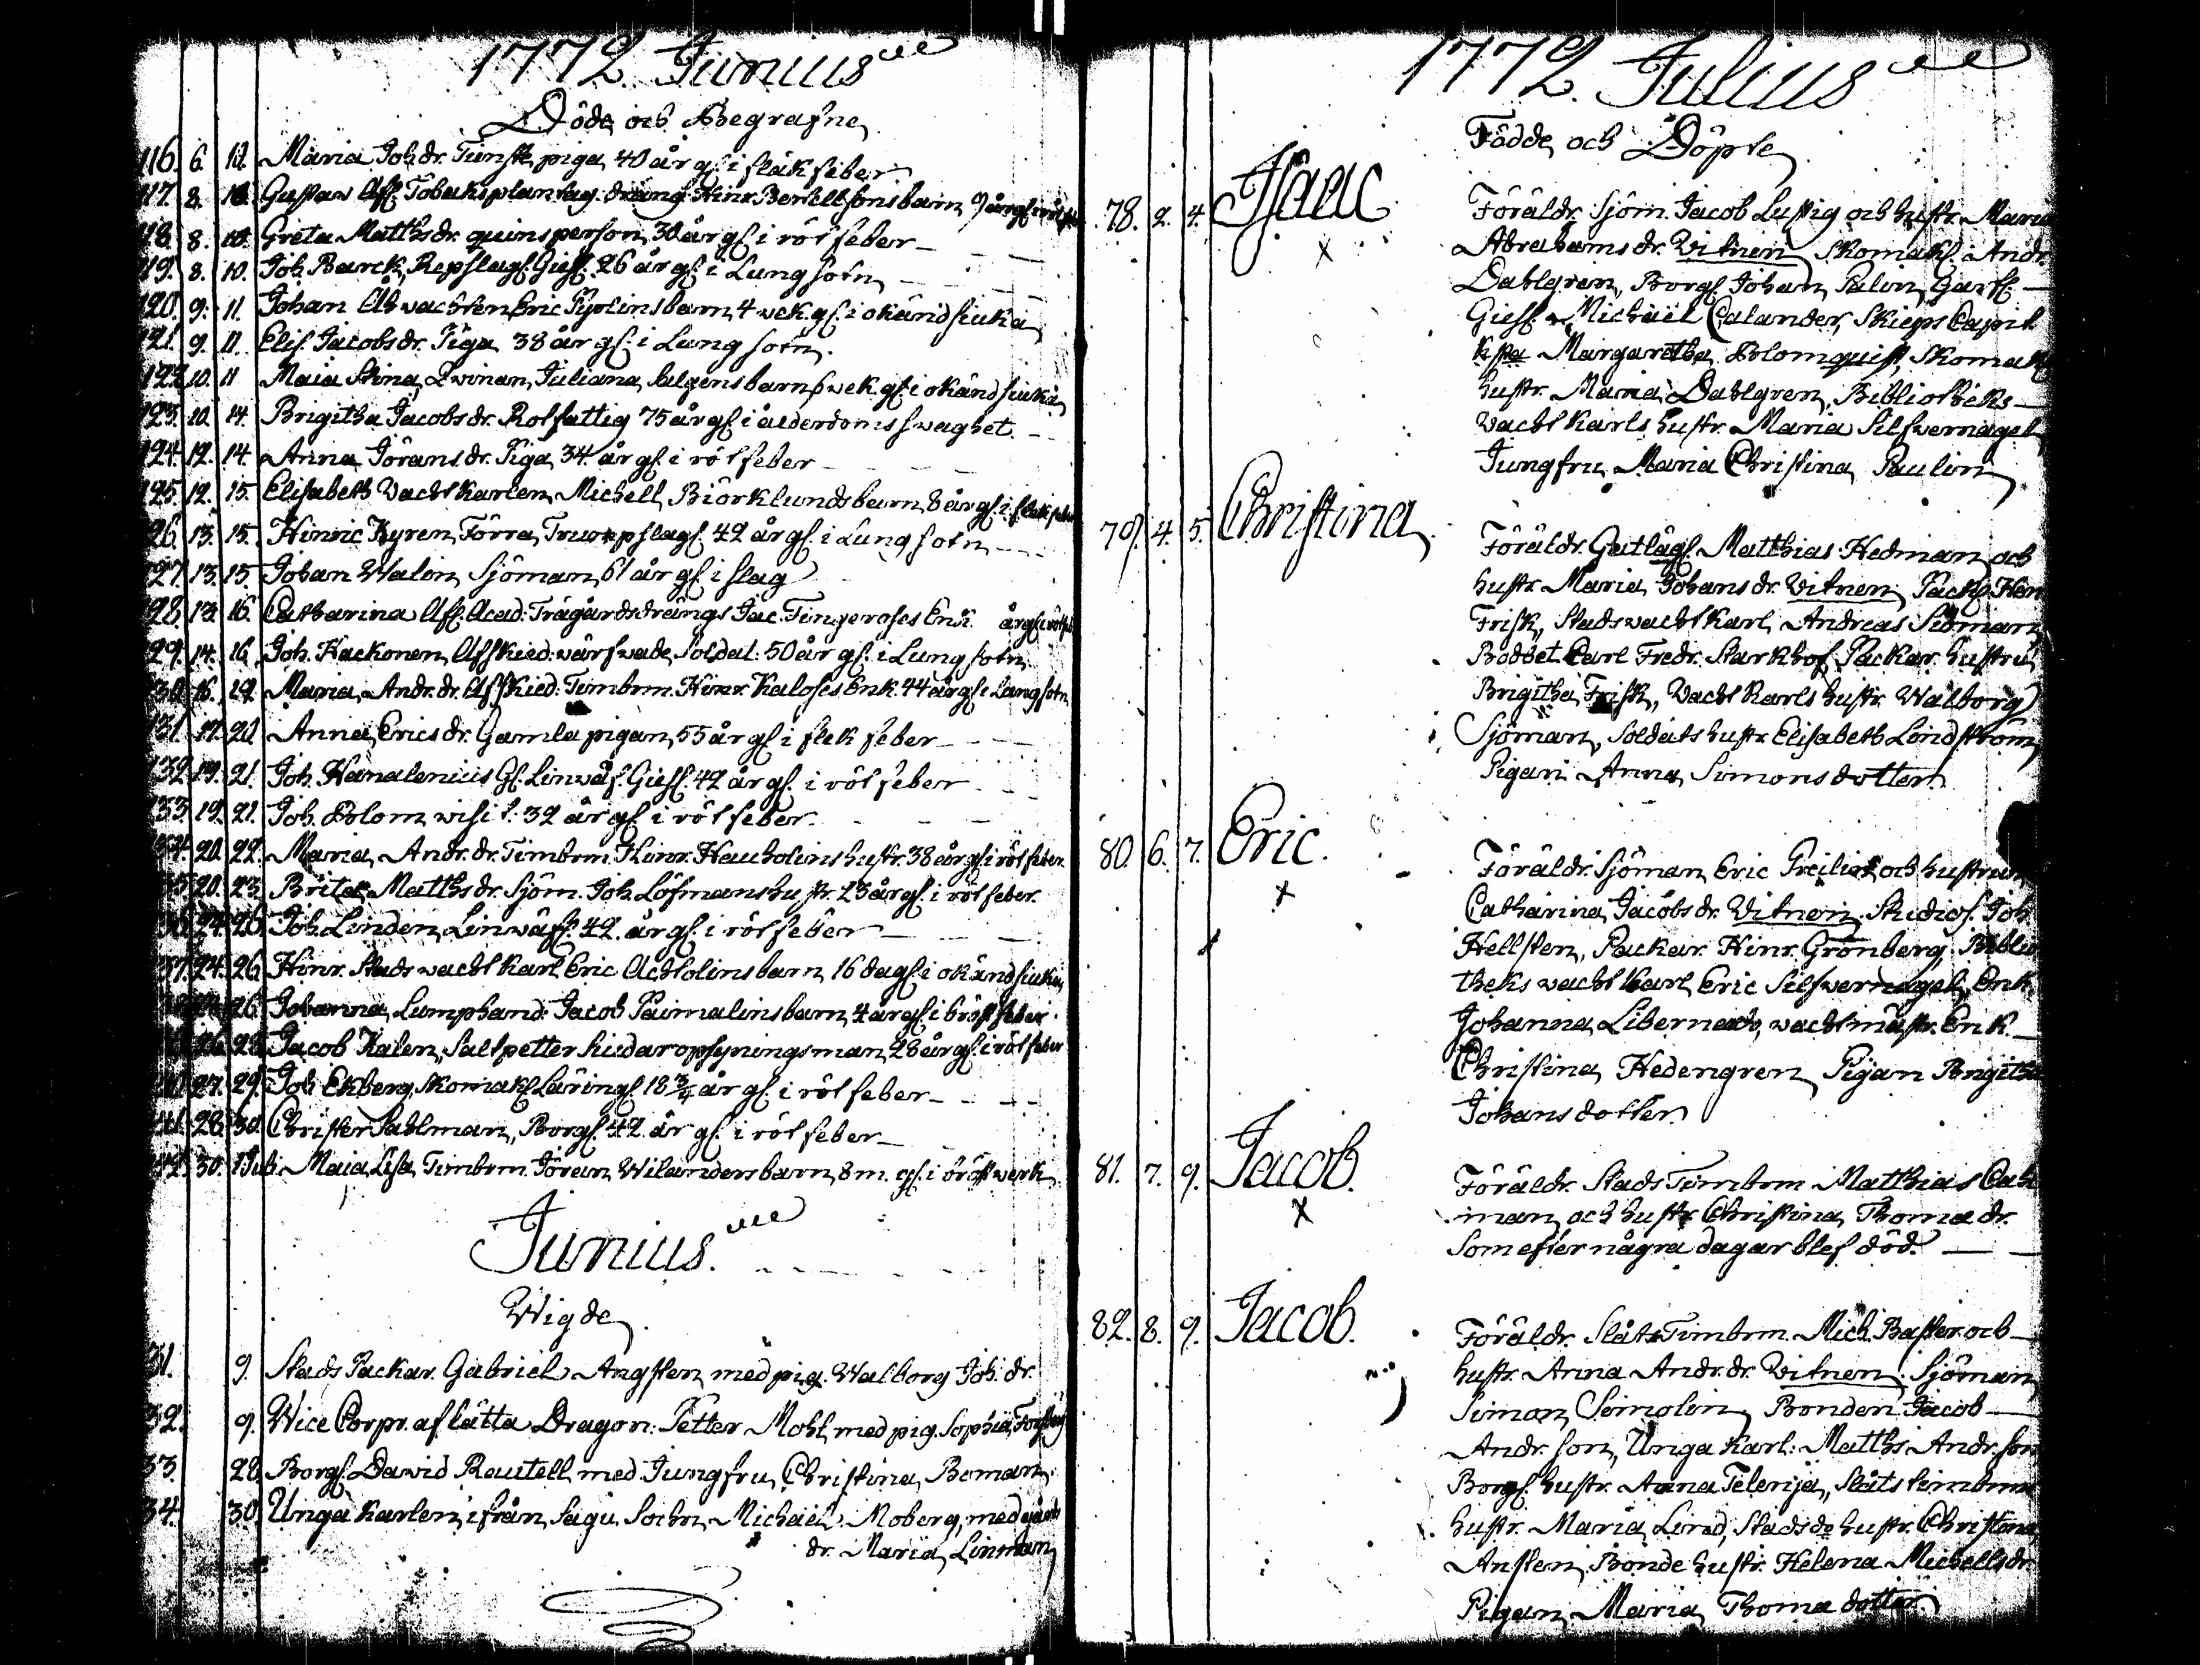 1772 Junius
Döde och Begrafne
116. 6. 12. Maria Joh. dr. Tienste piga 40 år gl. i fläkfeber
117. 8. 10. Gustaw Afsk. Tobaksplantag. dräng Hinr. Bertellsons barn 9 år gl. i rötfeb
118. 8. 10. Greta Matths dr. quinsperson 30 år gl. i rötfeber
119. 8. 10. Joh. Barck, Repslag. Gesl. 26 år gl. i Lungsotn
120. 9. 11. Johan Återwachten Eric Pyolins barn 4 wek. gl. i okänd siuka
121. 9. 11. Elis. Jacobs dr. Piga 38 år gl. i Lungsotn.
122. 10. 11 Maia Stina, Qvinan, Juliana Salgens barn wek. gl. i okänd siuka
123. 10. 14. Brigitha Jacobs dr. Rotfattig 75 år gl. i ålderdoms swaghet.
124. 12. 14. Anna Jörans dr. Piga 34 år gl. i rötfeber
125. 12. 15. Elisabeth Wachtkarlen Michell Biörklunds barn 8 år gl. i flekfeber
126. 13. 15. Hinric Kyren, Förra Trumpslag. 42 år gl. i Lungsotn
127. 13. 15. Johan Walin Sjöman, 61 år gl. i slag
128. 13. 16. Catharina Afsk. Acad: Trägårdsdrängs Jac. Tingeroses Enk. år gl. i rötfeb
129. 14. 16. Joh. Kackonen Afskied. wärfwade Soldat. 50 år gl. i Lungsotn
130. 16. 19. Maria Andr. dr. Afskied. Timbrm. Hinr. Kaloses Enk. 44 år gl. i Lungsotn
131. 17. 20. Anna Erics dr. Gamla pigan, 55 år gl. i flekfeber
132. 19. 21. Joh. Kanalenius Gl. Linwäf. Giesl. 42 år gl. i rötfeber
133. 19. 21. Joh. Holom wisit. 32 år gl. i rötfeber.
134. 20. 22. Maria Andr. dr. Timbrm. Hinr. Hauholins hustr. 38 år gl. i rötfeber
135. 20. 23. Brita Matths dr. Sjöm. Joh. Löfmans hustr. 23 år gl. i rötfeber.
136. 24. 26. Joh. Linden Linwäf. 42 år gl. i rötfeber
137. 24. 26. Hinr. Stadswachtkarl Eric Achtolins barn 16 dag. gl. i okänd siuka
26. Johanna Lumphand. Jacob Paimalins barn 4 år gl. i bröstfeber.
26. 28. Jacob Kalen, Saltpetter siudar opsyningsman, 28 år gl. i rötfeber
140. 27. 29. Joh. Ekberg, Skomak. Läringl. 18 3/4 år gl. i rötfeber
141. 28. 30. Christer Sahlman, Borgl. 42 år gl. i rötfeber
142. 30. 1 Juli. Maia Lisa Timbrm. Jöran Wilanders barn 8 m. gl. i bröstwerk
Junius.
Wigde
31. 9. Stads Packar. Gabriel Angsten med pig. Walborg Joh. dr.
32. 9. Wice Corpr. af lätta Dragon: Petter Moht med pig. Sophia
33. 28 Borgl. David Rautell med Jungfru Christina Boman.
34. 30. Unga karlen ifrån Sagu Sochn Michaël Moberg, med
dr. Maria Linman
1772. Julius
Födde och Döpte
78. 2. 4. Isaac
Föräldr. Sjöm. Jacob Lustig och hustr. Maria
Abrahams dr. Vitnen Skomak. Andr.
Dahlgren, Borgl. Johan Palin, Garf.
Giesl. Michaël Calander, Skieps Capit.
Margaretha Holomquist, Skomak
hustr. Maria Dahlgren, Bibliotheks
wacht Karls hustr. Maria Silfwernagel
Jungfru Maria Christina Paulin
79. 4. 5. Christina
Föräldr. Gatläg. Matthias Hedman och
hustr. Maria Johans dr. Vitnen Pack. Hen
Frisk, Stadswacht Karl Andreas Siöman
Carl Fredr. Starkhof Packar. hustru
Brigitha Frisk, Wacht Karls hustr. Walborg
Sjöman, Soldats hustr. Elisabeth Lindström
Pigan Anna Simonsdotter
80. 6. 7. Eric.
Föräldr. Sjöman Eric Preilios och hustrun
Catharina Jacobs dr. Vitnen. Studios. Joh
Hellsten, Packar. Hinr. Grönberg, Biblio
theks wacht karl Eric Silfwernagel, Enk.
Johanna Libernardr, wachtmästr. Enk.
Christina Hedengren Pigan Brigitha
Johansdotter
81. 7. 9. Jacob.
Föräldr. Stads Timbrm. Matthias Cahl
man och hustr. Christina Thoma dr.
Som efter några dagar blef död.
82. 8. 9. Jacob.
Föräldr. Slåts Timbrm. Mich. Baster och
hustr. Anna Andr. dr. Vitnen. Sjöman
Simon Simolin Bonden Jacob
Andr. son, Unga Karl. Matths Andr. son
Borgl. hustr. Anna Telenija, Slåts timbrm
hustr. Maria Lind, Stads do hustr. Christina
Ansten, Bonde hustr. Helena Michells dr.
Pigan Maria Thomadotter.